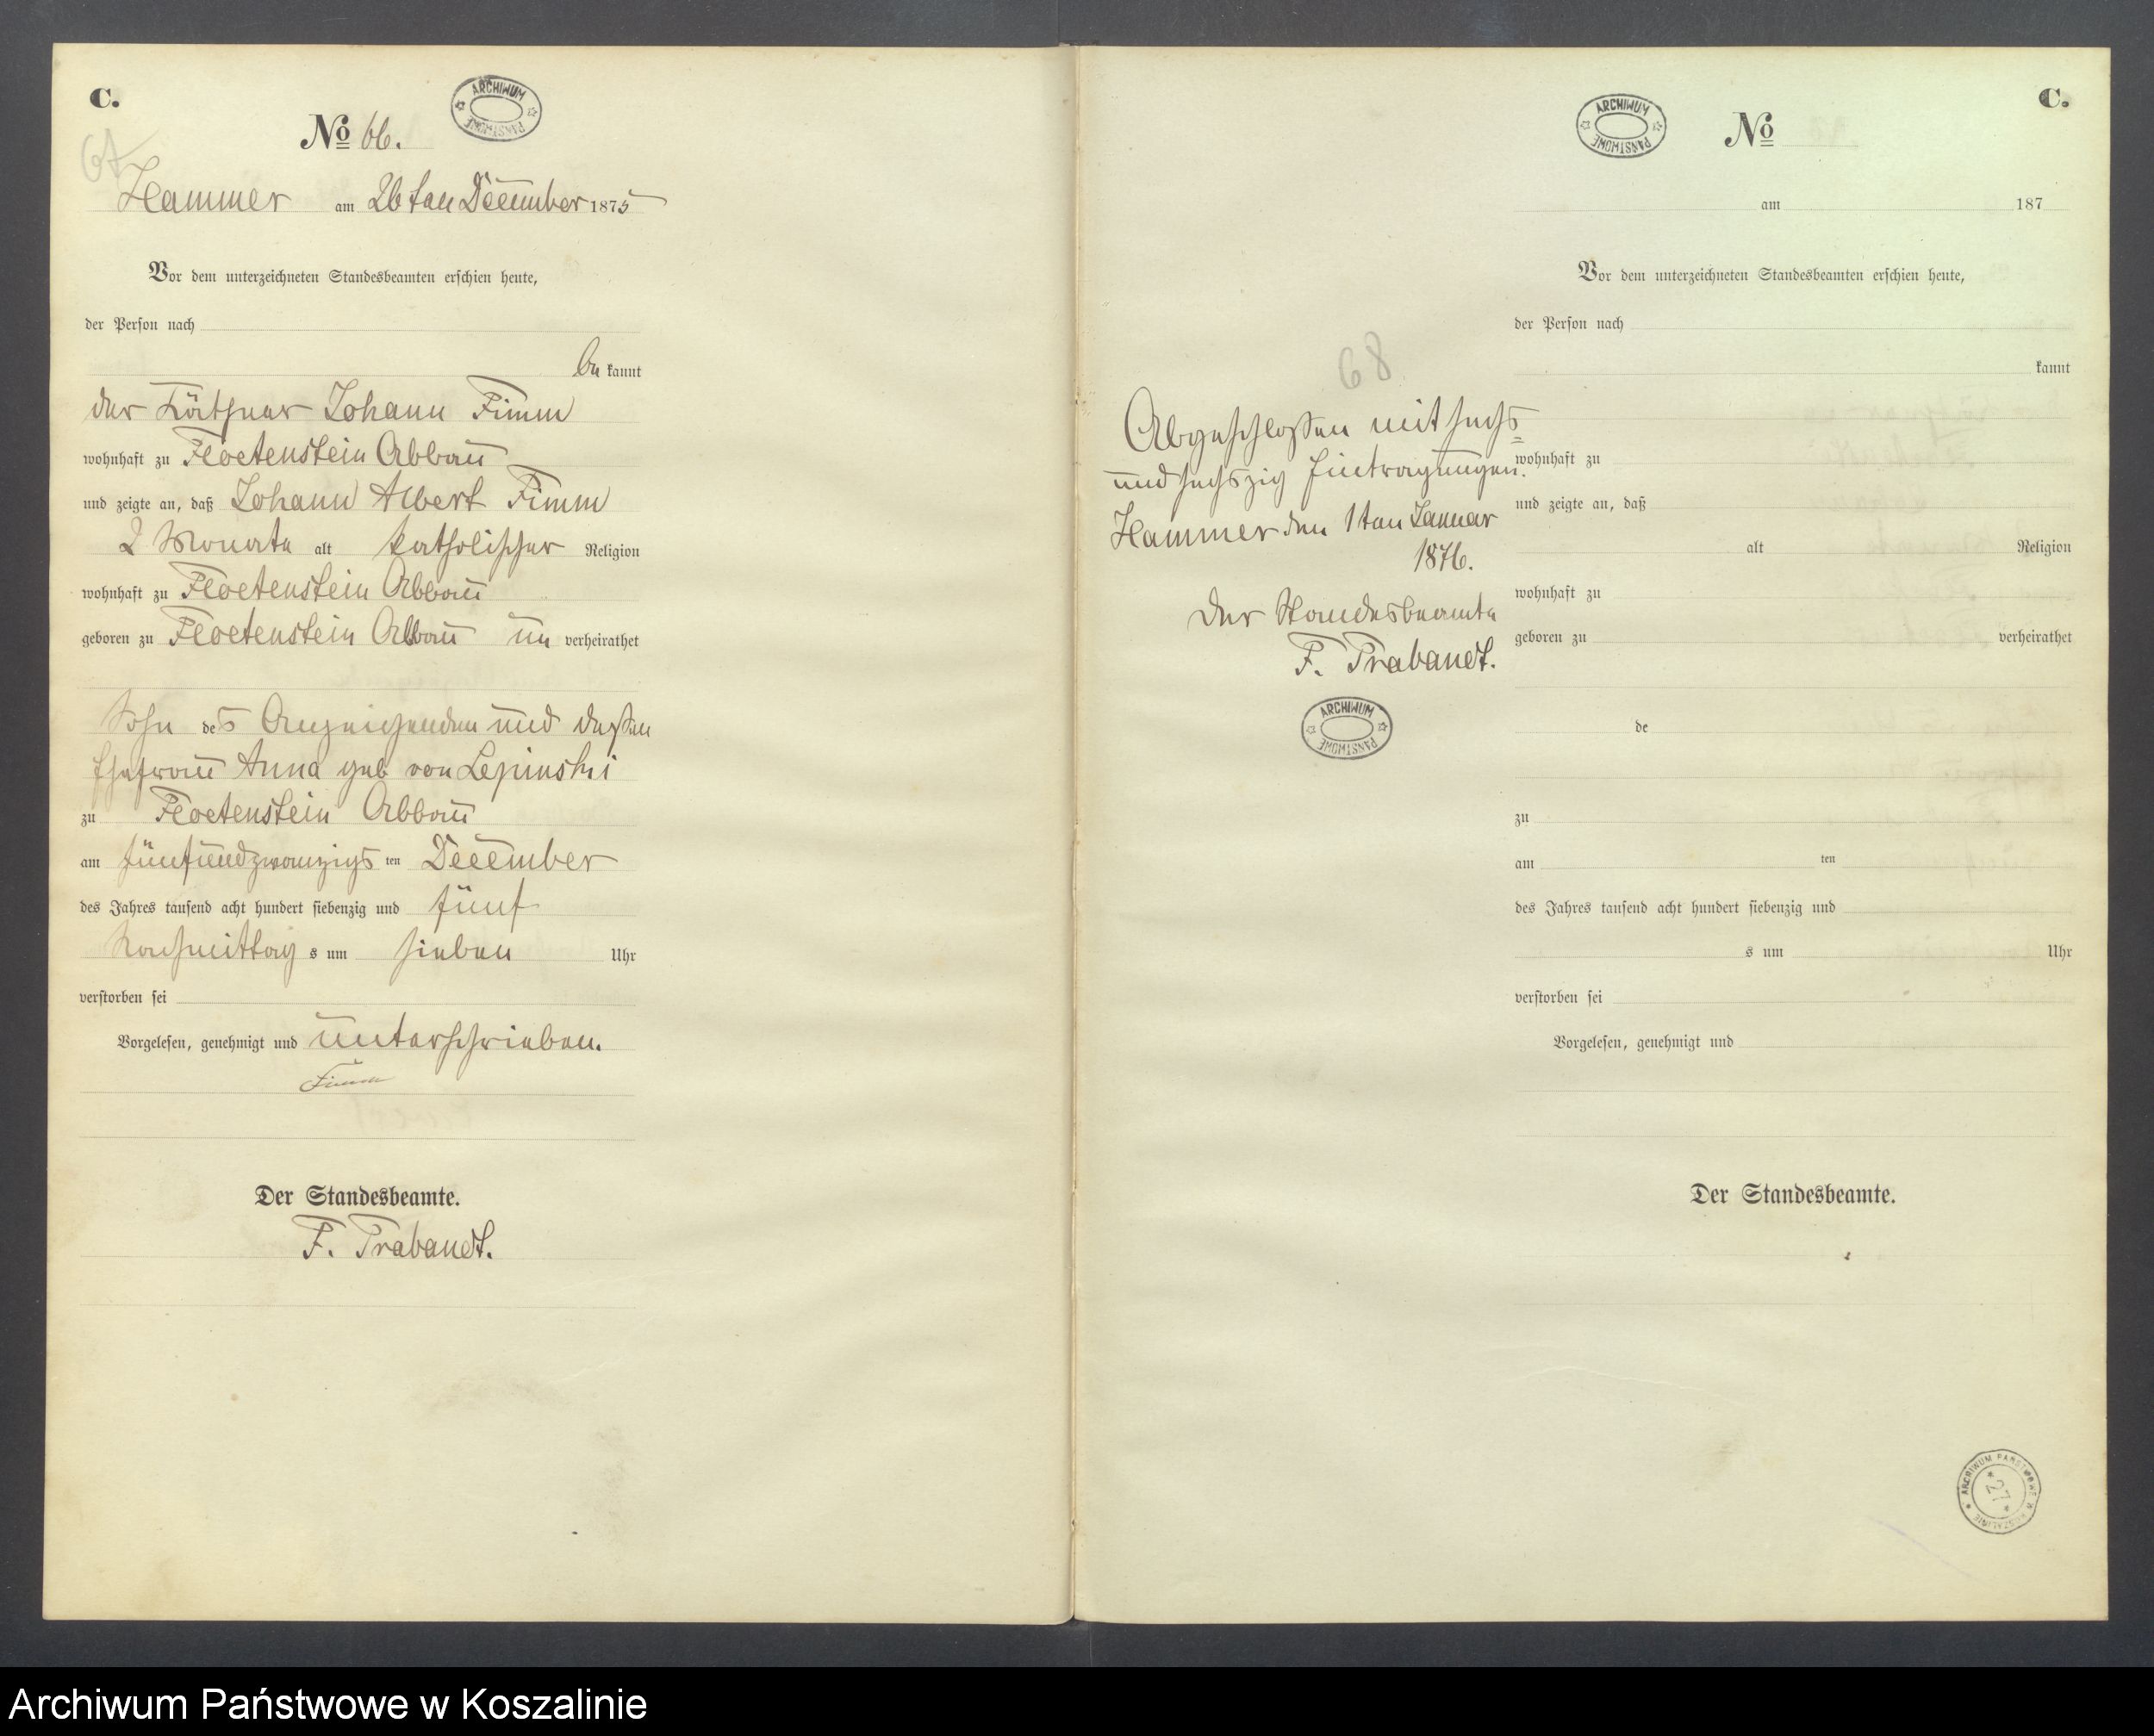 C.
No 66.
67
Hammer am 26ten December 1875
Vor dem unterzeichneten Standesbeamten erschien heute,
der Person nach
be kannt
der Käthner Johann Fimm
wohnhaft zu Floetenstein Abbau
und zeigte an, daß Johann Albert Fimm
2 Monate alt katholischer Religion
wohnhaft zu Floetenstein Abbau
geboren zu Floetenstein Abbau un verheirathet
Sohn des Anzeigenden und dessen
Ehefrau Anna geb von Lepinski
zu Floetenstein Abbau
am fünfundzwanzigs ten December
des Jahres tausend acht hundert siebenzig und fünf
Nachmittag s um sieben Uhr
verstorben sei
Vorgelesen, genehmigt und unterschrieben.
Fimm
Der Standesbeamte.
F. Prabandt.
ARCHIWUM PAŃSTWOWE
C.
No
am 187
Vor dem unterzeichneten Standesbeamten erschien heute,
der Person nach
kannt
wohnhaft zu
und zeigte an, daß
alt Religion
wohnhaft zu
geboren zu verheirathet
de
zu
am ten
des Jahres tausend acht hundert siebenzig und
s um Uhr
verstorben sei
Vorgelesen, genehmigt und
Der Standesbeamte.
68
Abgeschlossen mit sechs=
und sechszig Eintragungen.
Hammer den 1ten Januar
1876.
Der Standesbeamte
F. Prabandt.
ARCHIWUM PAŃSTWOWE
ARCHIWUM PAŃSTWOWE
ARCHIWUM PAŃSTWOWE W KOSZALINIE
* 27 *
Archiwum Państwowe w Koszalinie